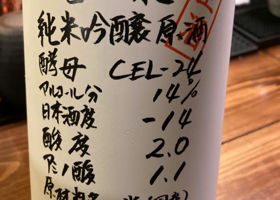 純米吟醸原酒
酵母 CEL-24
アルコール分 14%
日本酒度 -14
酸度 2.0
アミノ酸 1.1